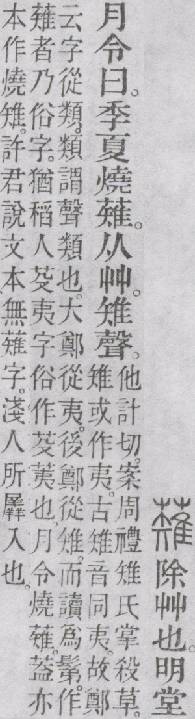 薙除艸也。明堂
月令曰。季夏燒薙。从艸。雉聲。
他計切。案周禮雉氏掌殺草。
雉或作夷。古雉音同夷。故鄭
云字從類。類謂聲類也。大鄭從夷。後鄭從雉。而讀為鬀。作
薙者乃俗字。猶稻人芟夷字俗作芟荑也。月令燒薙。蓋亦
本作燒雉。許君說文本無薙字。淺人所羼入也。